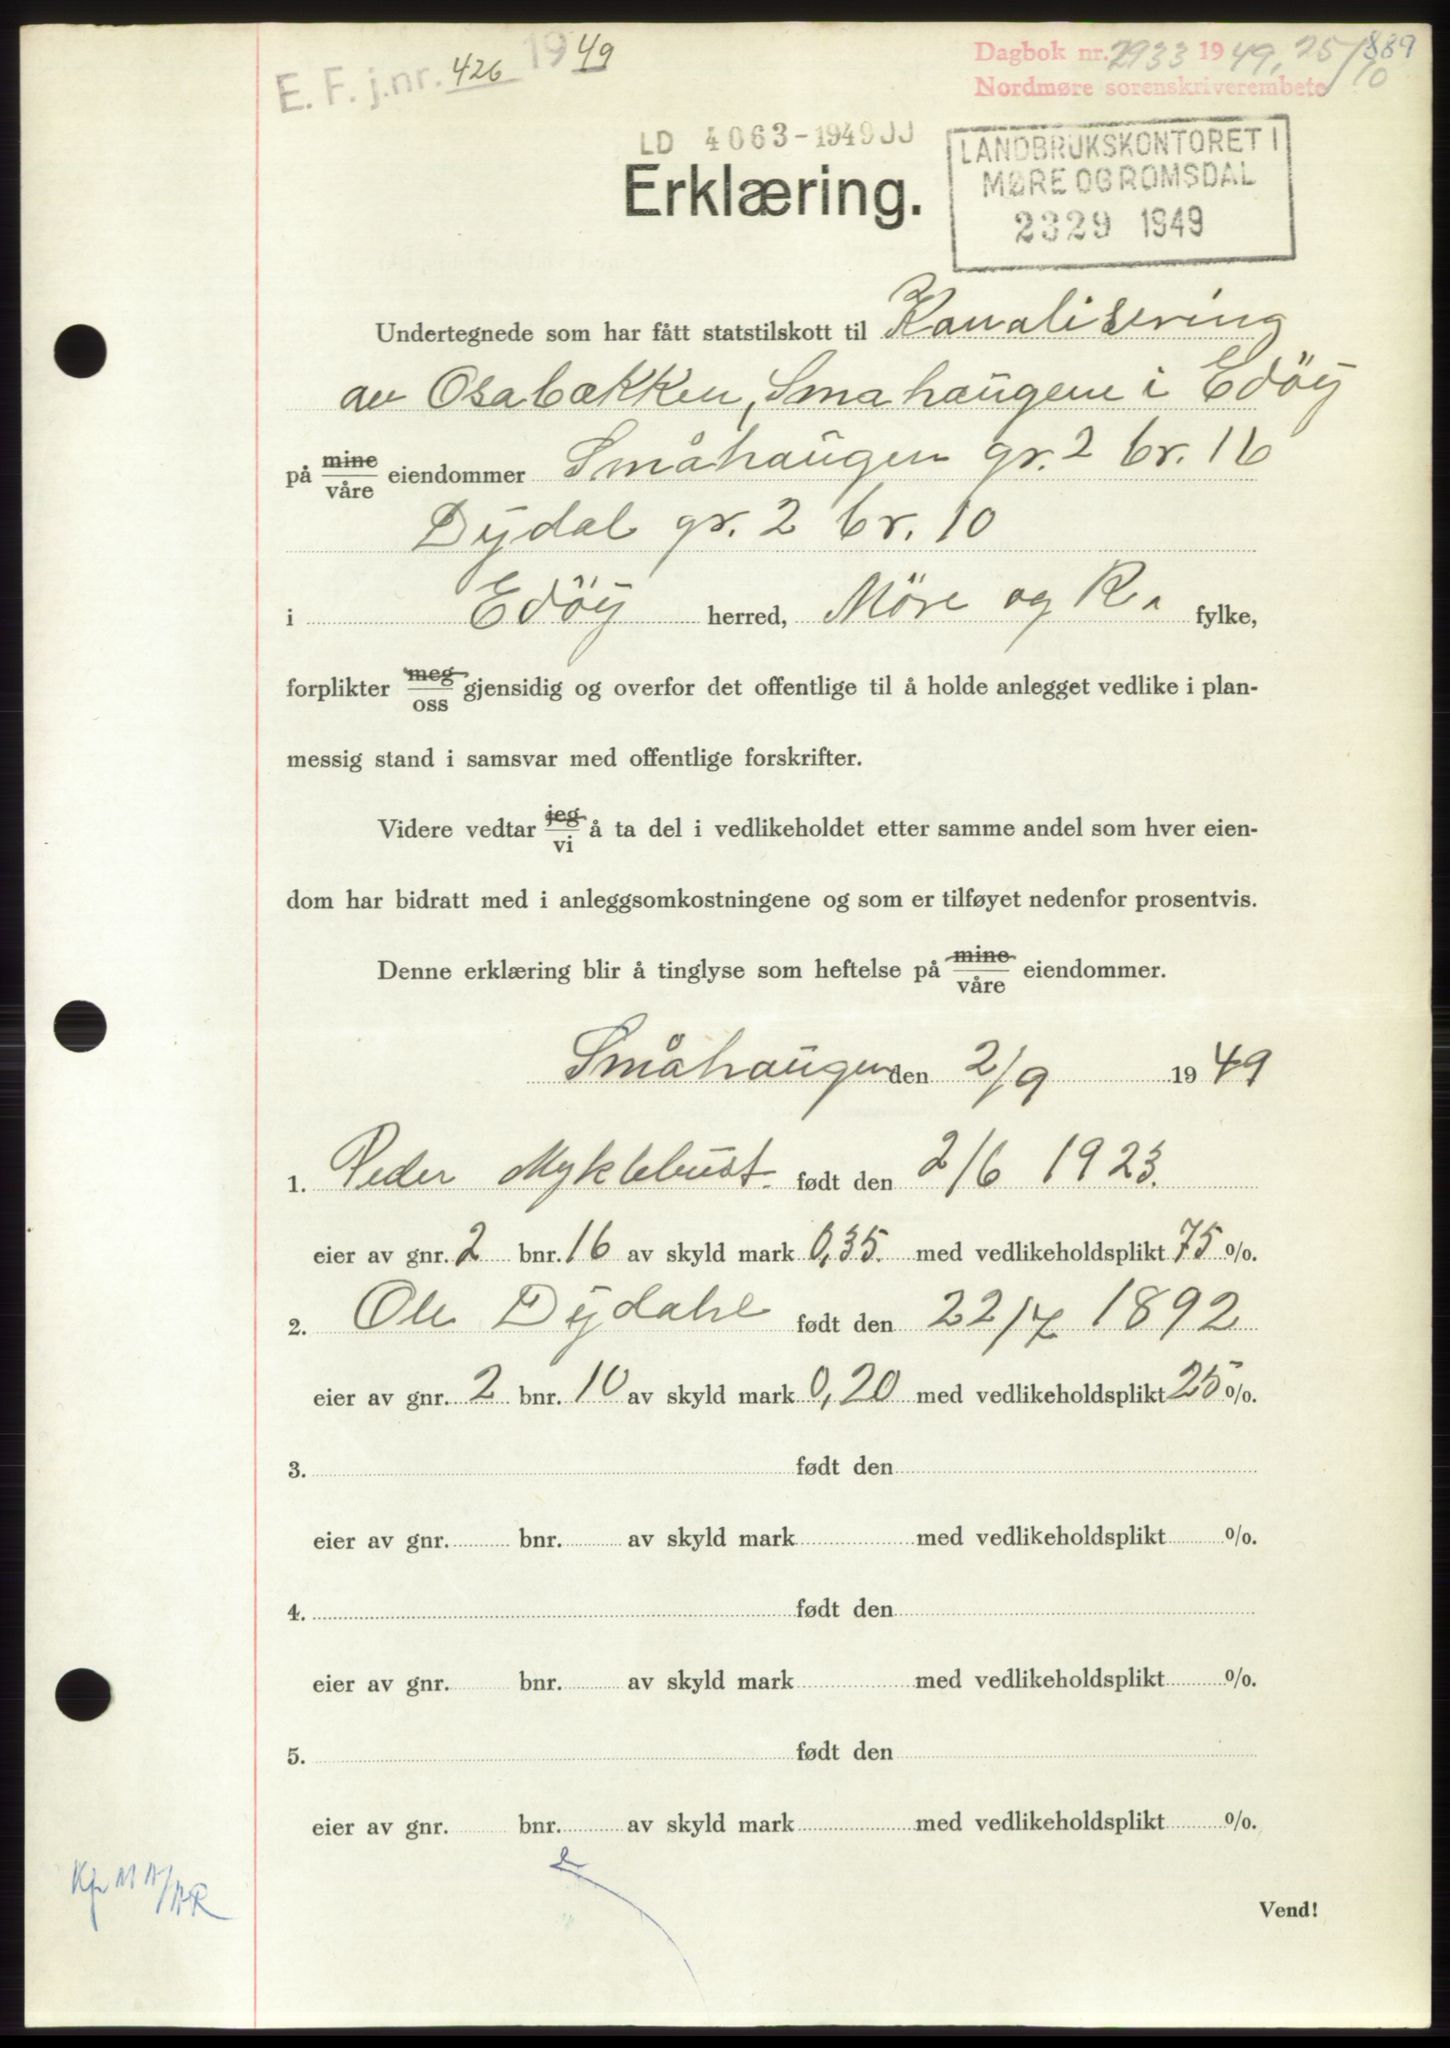 E. F. j.nr. 426 1949
Dagbok nr. 2933 1949, 25/10
889
Nordmøre sorenskriverembete
LD 4063-1949 JJ
LANDBRUKSKONTORET I
MØRE OG ROMSDAL
2329 1949
Erklæring.
Undertegnede som har fått statstilskott til Kanalisering
av Osabækken, Småhaugene i Edöy
på mine/våre eiendommer Småhaugen gr. 2 br. 16
Dydal gr. 2 br. 10
i Edöy herred, Möre og R. fylke,
forplikter meg/oss gjensidig og overfor det offentlige til å holde anlegget vedlike i plan-
messig stand i samsvar med offentlige forskrifter.
Videre vedtar jeg/vi å ta del i vedlikeholdet etter samme andel som hver eien-
dom har bidratt med i anleggsomkostningene og som er tilføyet nedenfor prosentvis.
Denne erklæring blir å tinglyse som heftelse på mine/våre eiendommer.
Småhaugen den 2/9 1949
1. Peder Myklebust født den 2/6 1923.
eier av gnr. 2 bnr. 16 av skyld mark 0,35 med vedlikeholdsplikt 75 %.
2. Ole Dydahl født den 22/7 1892
eier av gnr. 2 bnr. 10 av skyld mark 0,20 med vedlikeholdsplikt 25 %.
3. født den
eier av gnr. bnr. av skyld mark med vedlikeholdsplikt %.
4. født den
eier av gnr. bnr. av skyld mark med vedlikeholdsplikt %.
5. født den
eier av gnr. bnr. av skyld mark med vedlikeholdsplikt %.
Vend!